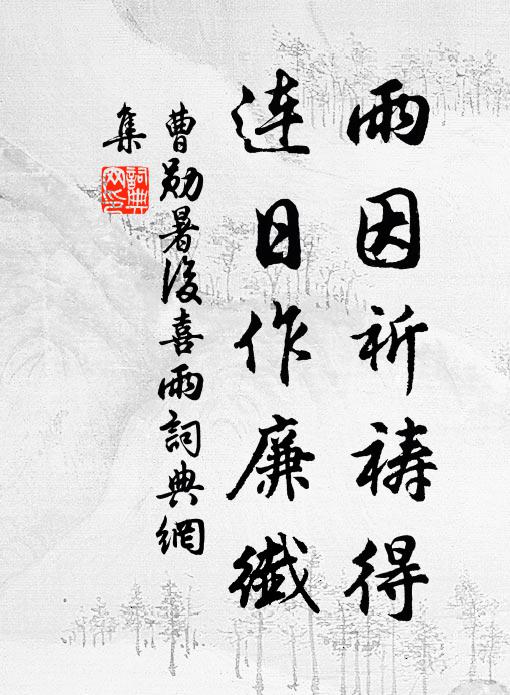 雨因祈禱得
連日作廉纖
曹勛暑後喜雨詞典網
集
詞典網印